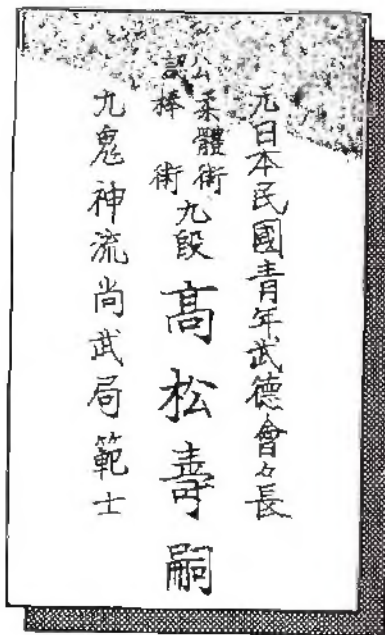 元日本民國青年武德會々長
公認
柔體術
棒術
九段
高松壽嗣
九鬼神流尚武局範士